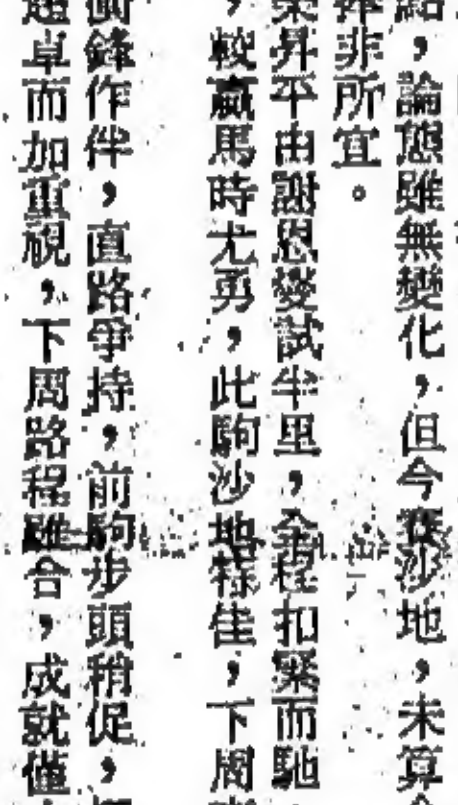 點，論態雖無變化，但今賽沙地，未算
非所宜。
榮昇平由謝恩變試半里，全程扣緊而馳
，較贏馬時尤勇，此駒沙地程佳，下周
衝鋒作伴，直路爭持，前駒步頭稍促，
超卓而加重視，下周路程雖合，成就僅